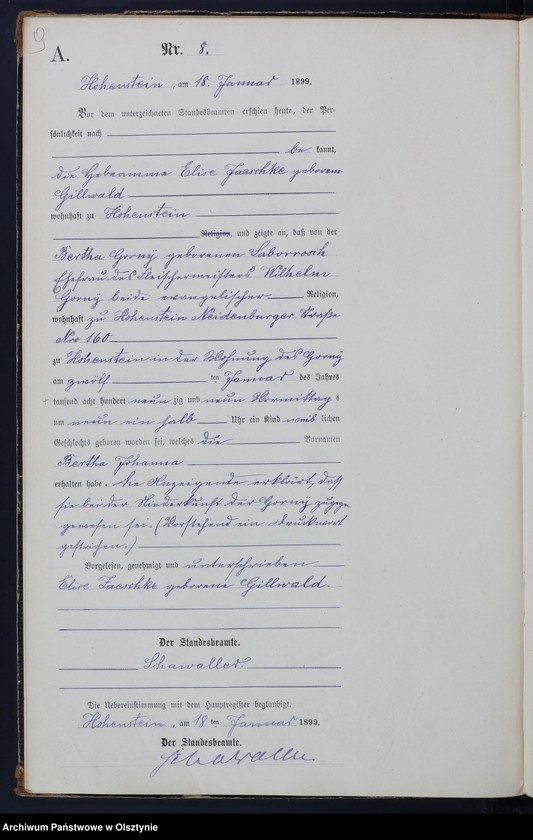 9
A.
Nr. 8.
Hohenstein, am 18. Januar 1899.
Vor dem unterzeichneten Standesbeamten erschien heute, der Per-
sönlichkeit nach
be kannt,
die Hebeamme Elise Jaeschke geborene
Gillwald
wohnhaft zu Hohenstein
Religion, und zeigte an, daß von der
Bertha Gorny geborenen Saborrosch
Ehefrau des Fleischermeisters Wilhelm
Gorny beide evangelischer Religion,
wohnhaft zu Hohenstein Neidenburger Straße
Nro 160
zu Hohenstein in der Wohnung des Gorny
am zwölf ten Januar des Jahres
tausend acht hundert neun zig und neun Vormittag s
um neun ein halb Uhr ein Kind weib lichen
Geschlechts geboren worden sei, welches die Vornamen
Bertha Johanna
erhalten habe. Die Anzeigende erklärt, daß
sie bei der Niederkunft der Gorny zugegen
gewesen sei. (Vorstehend ein Druckwort
gestrichen.)
Vorgelesen, genehmigt und unterschrieben
Elise Jaeschke geborene Gillwald.
Der Standesbeamte.
Schawaller.
Die Uebereinstimmung mit dem Hauptregister beglaubigt.
Hohenstein, am 18 ten Januar 1899.
Der Standesbeamte.
Schawaller
Archiwum Państwowe w Olsztynie